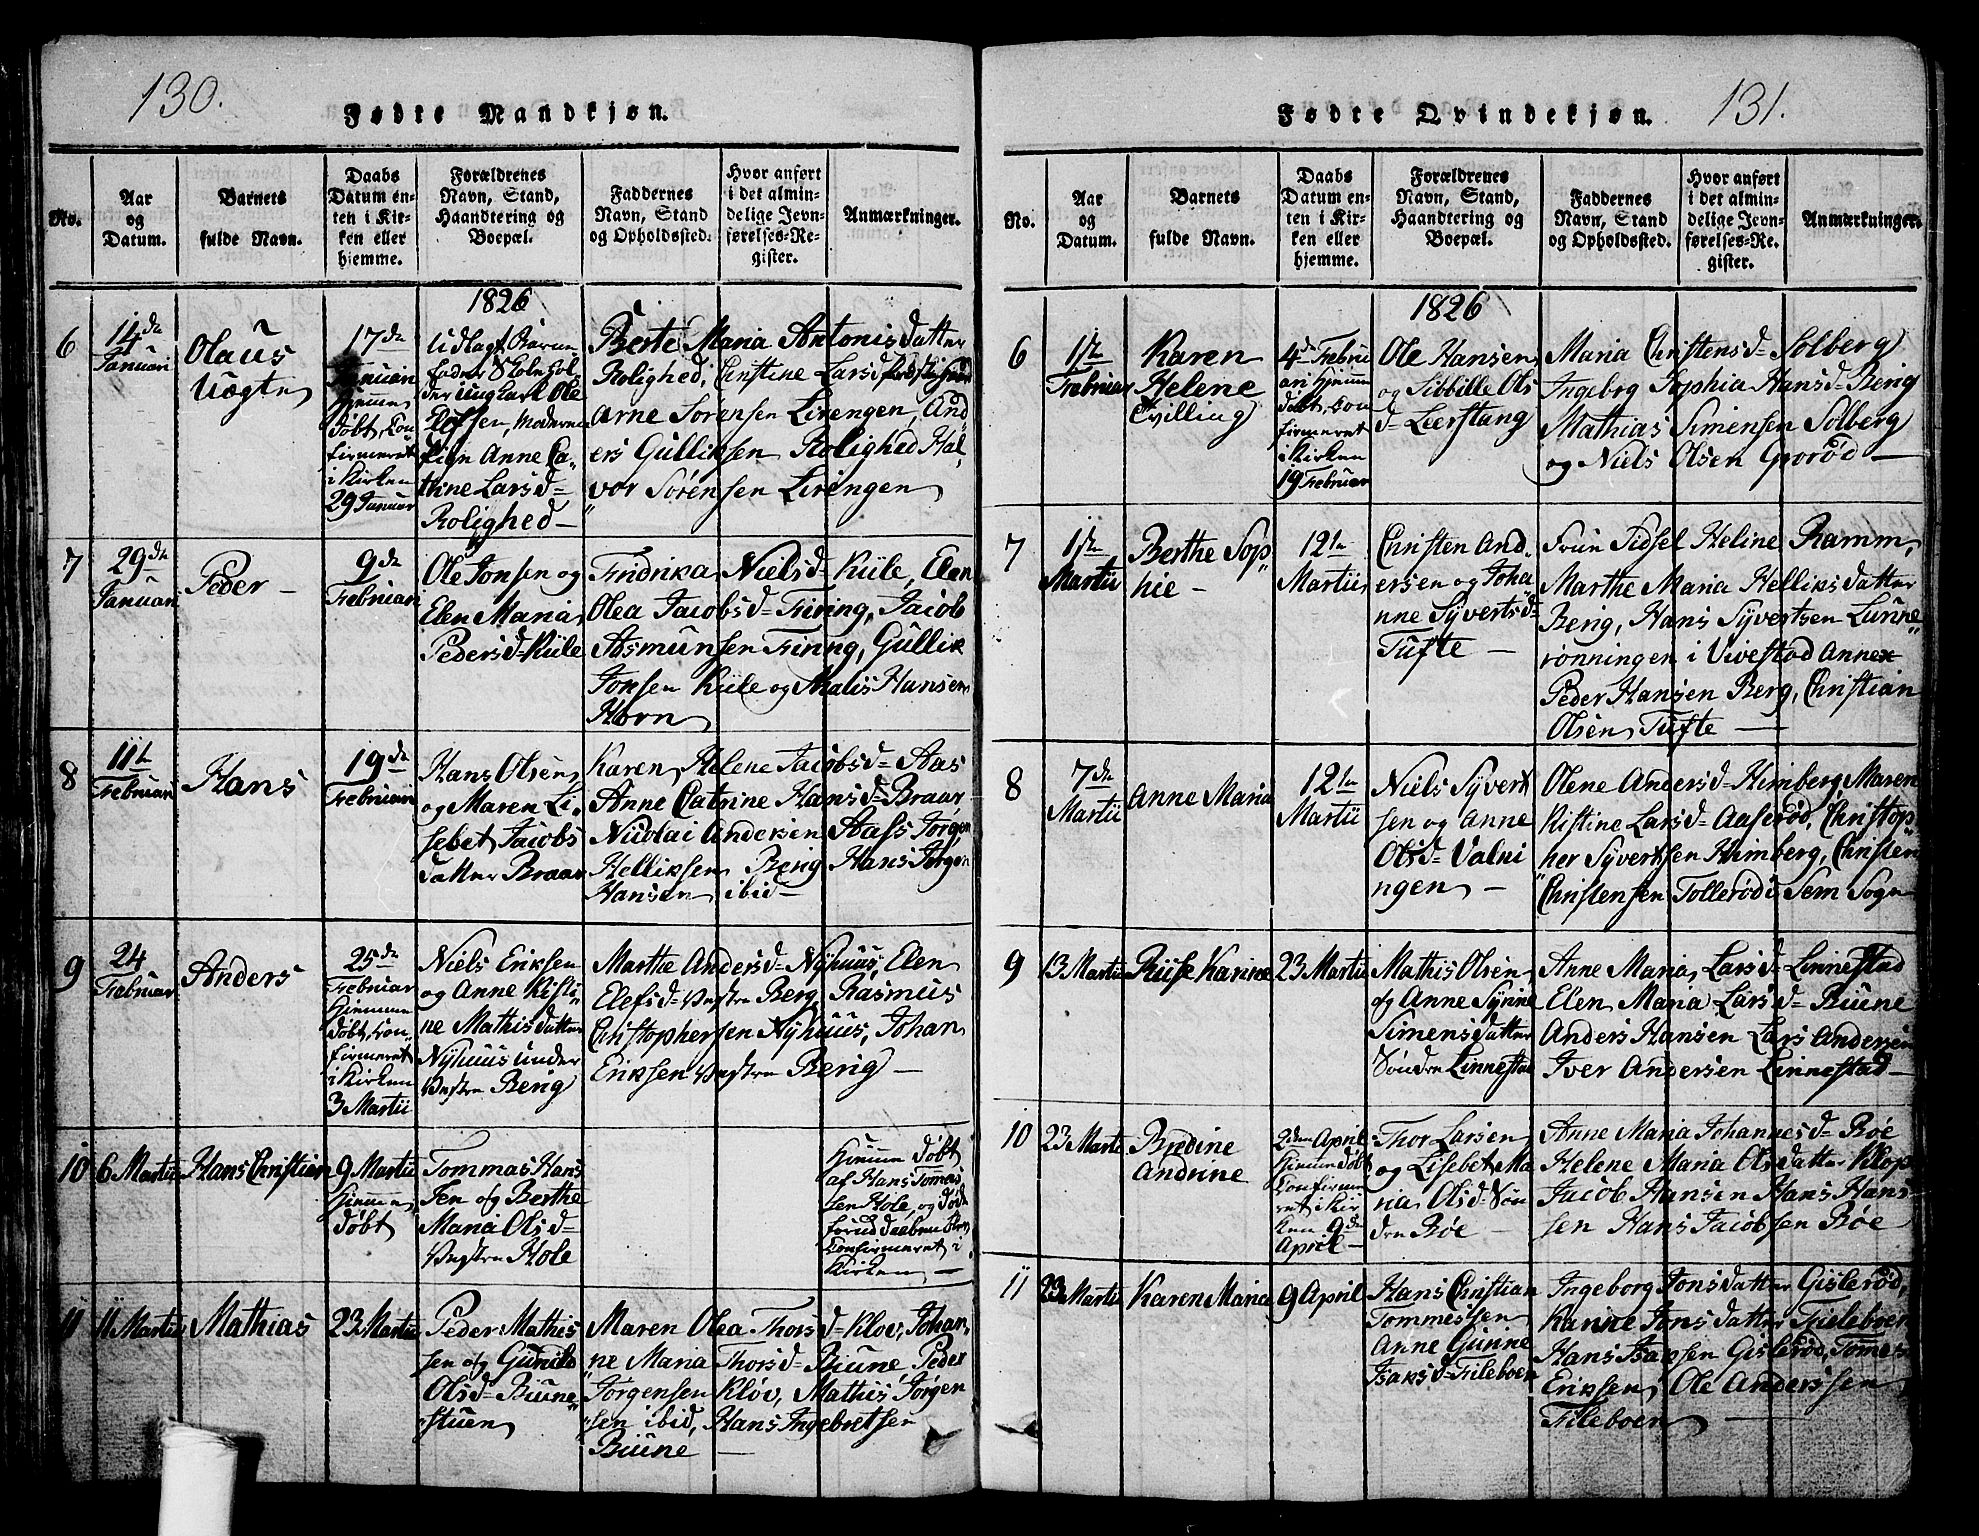 130.
Fødte Mandkjøn.
No.
Aar
og
Datum.
Barnets
fulde Navn.
Daabs
Datum en-
ten i Kir-
ken eller
hjemme.
Forældrenes
Navn, Stand,
Haandtering og
Boepæl.
Faddernes
Navn, Stand
og Opholdssted.
Hvor anført
i det almin-
delige Jevn-
førelses-Re-
gister.
Anmærkninger.
1826
6
14de
Januari
Olaus
17de
Januari
Hiemme
døbt, Con
firmeret
i Kirken
29 Januar
Udlagt Barne
fader Skolehol
der ungkarl Ole
Moderen
Anne Ca-
thrine Larsd=
Rolighed-
Berte Maria Antonisdatter
Rolighed, Christine Larsd
arne Sørensen Lirengen, And
ers Gulliksen Rolighed Hal,
vor Sørensen Lirengen
7
29de
Januari
Peder -
9de
Februari
Ole Jonsen og
Elen Maria
Pedersd=Kiile
Fridrika Nielsd=Kiile, Elen
Olea Jacobsd=Firing, Jacob
Asmunsen Firing, Gullik
Jonsen Kiile og Matis Hansen
Horn
8
11te
Februari
Hans
19de
Februari
Hans Olsen
og Maren Li-
sebet Jacobs
datter Braar
Karen Helene Jacobsd= Aas
Anne Catrine Hansd=Braar
Nicolai Andersen Aass Jørgen
Helliksen Berig Hans Jørgen
Hansen ibid-
9
24
Februar
Anders
25de
Februar
hiemme
døbt, Con
firmeret
i Kirken
3 Martii
Niels Eriksen
og Anne Kisti
ne Mathisdatter
Nyhuus under
Vestre Berig
Marthe Andersd=Nyhuus, Elen
Elefsd=Vestre Berg, Rasmus
Christophersen Nyhuus, Johan
Eriksen Vestre Berig -
10
6 Martii
Hans Christian
9 Martii
Hiemme
døbt
Tommas Hans
sen og Berthe
Maria Olsd=
Vestre Hole
Hiemme døbt
af Hans Tomes
sen Hole, og døde
førend Daaben blev
Confirmeret i
Kirken -
11
11 Martii
Mathias
23 Martii
Peder Mathis
sen og Gunild
Olsd=Biune
stuen
Maren Olea Thorsd=Kløv, Johan
ne Maria Thorsd=Biune Peder
Jørgensen Kløv, Mathis Jørgen
sen ibid, Hans Ingebretsen
Biune -
131.
Fødte Qvindekjøn.
No.
Aar
og
Datum.
Barnets
fulde Navn.
Daabs
Datum en-
ten i Kir-
ken eller
hjemme.
Forældrenes
Navn, Stand,
Haandtering og
Boepæl.
Faddernes
Navn, Stand
og Opholdssted.
Hvor anført
i det almin-
delige Jevn-
førelses-Re-
gister.
Anmærkninger.
1826
6
1ste
Februar
Karen
Helene
(Tvilling)
4de Febru
ari hiemme
døbt, Con
firmeret
i Kirken
19 Februar
Ole Hansen
og Sibbille Ols
d= Leerstang
Maria Christensd= Solberg
Ingebog Sophia Hansd=Berig
Mathias Simensen Solberg
og Niels Olsen Gororød -
7
1ste
Martii
Berthe Sop
hie -
12te
Martii
Christen And
ersen og Joha
nne Syvertsd=
Tufte -
Frue Sidsel Heline Ramm,
Marthe Maria Helliksdatter
Berig, Hans Syvertsen Lunne
rønningen i Vivestad Annex
Peder Hansen Berg, Christian
Olsen Tufte -
8
7de
Martii
Anne Maria
12te
Martii
Niels Syvert
sen og Anne
Olsd=Valni
ngen -
Olene Andersd=Himberg, Maren
Kistine Larsd=Aaserød, Christop
her Syvertsen Himberg, Christen
Christensen Tollerød i Sem Sogn
9
13 Martii
Riise Karine
23 Martii
Mathis Olsen
og Anne Synne
Simensdatter
Søndre Linnestad
Anne Maria Larsd=Linnestad
Elen Maria Larsd=Biune
Anders Hansen Lars Andersen
Iver Andersen Linnestad-
10
23 Martii
Bredine
Andrine
2den April
hiemme døbt
Confirme
ret i Kir
ken 9de
April-
Thor Larsen
og Lisebet Ma
ria Olsd=Søn
dre Bøe
Anne Maria Johannesd=Bøe
Helene Maria Olsdatter Klop
Jacob Hansen Hans Hans-
sen Hans Jacobsen Bøe
11
23 Martii
Karen Maria
9 April
Hans Christian
Tommessen
Anne Gunne
Isaksd=Fileboen
Ingeborg Jonsdatter Gislerød,
Karine Jonsdatter Fieleboen
Hans Isaksen Gislerød, Tomes
Eriksen, Ole Anderssen
Fileboen -